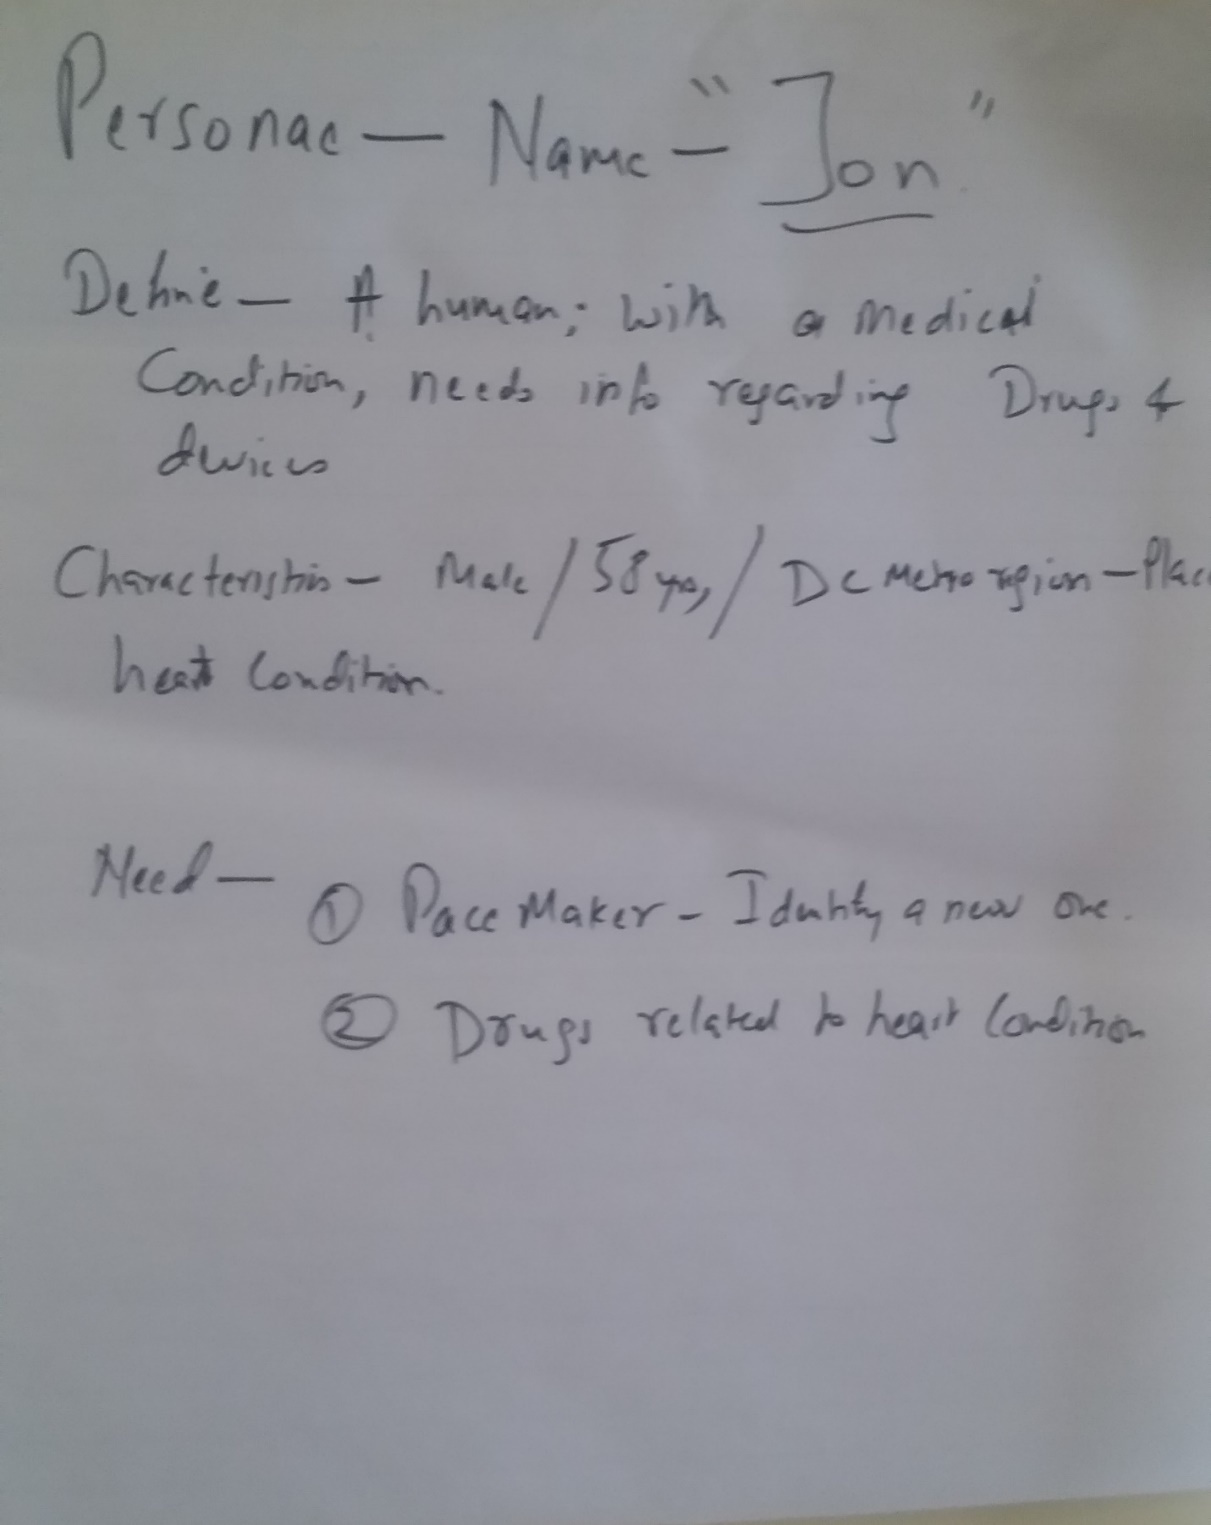 Personae — Name - "Jon"
Define — A human; with a medical
Condition, needs info regarding Drugs &
devices
Characteristics - Male / 58 yrs, / DC Metro region - Plac
heart Condition.
Need — ① Pace Maker - Identify a new one.
② Drugs related to heart Condition